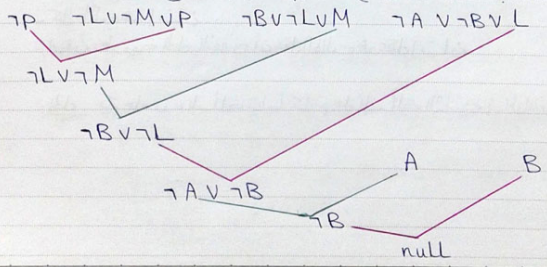 ¬P ¬L∨¬M∨P ¬B∨¬L∨M ¬A ∨ ¬B∨ L
¬L∨¬M
¬B∨¬L
A B
¬A ∨ ¬B
¬B
null